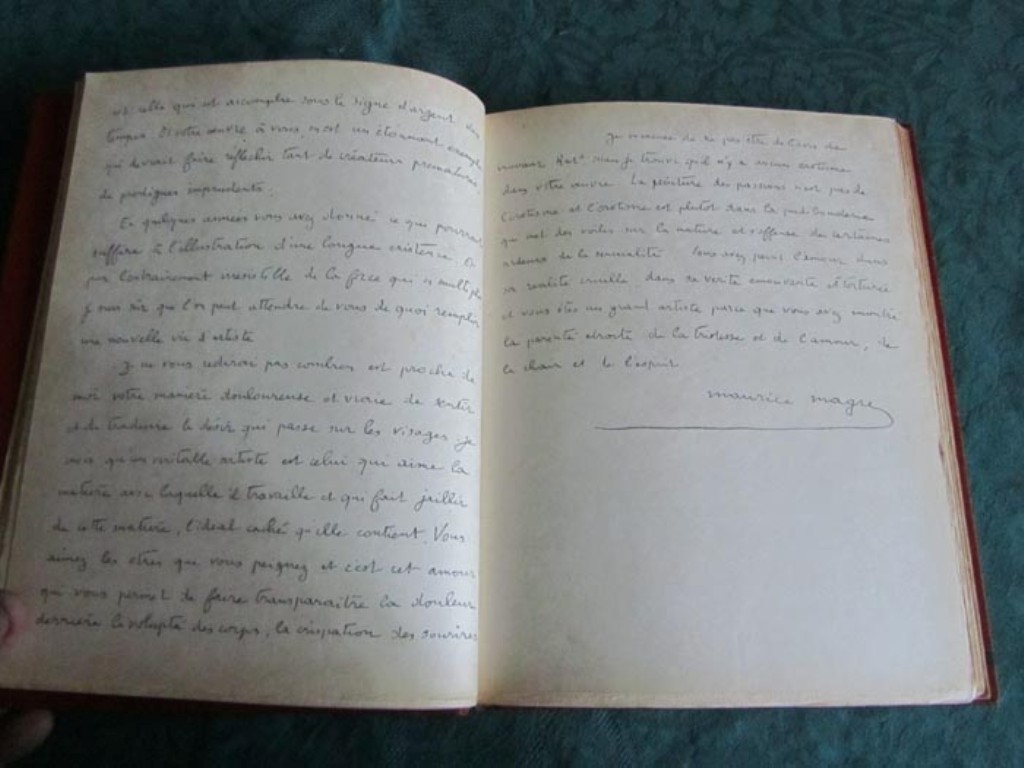 est celle qui est accomplie sous le signe d'argent du
temps. Et votre œuvre à vous, est un étonnant exemple
qui devrait faire réfléchir tant de créateurs prématurés,
de prodigues imprudents.
En quelques années vous avez donné ce que pourrait
suffire à l'illustration d'une longue existence. Et
par l'entrainement irrésistible de la force qui se multiplie
je suis sûr que l'on peut attendre de vous de quoi remplir
une nouvelle vie d'artiste
Je ne vous redirai pas combien est proche de
moi votre manière douloureuse et vraie de sentir
et de traduire le désir qui passe sur les visages. je
crois qu'un véritable artiste est celui qui aime la
matière avec laquelle il travaille et qui fait jaillir
de cette matière, l'idéal caché qu'elle contient. Vous
aimez les êtres que vous peignez et c'est cet amour
qui vous permet de faire transparaître la douleur
derrière la volupté des corps, la crispation des sourires
Je m'excuse de ne pas être de l'avis de
mais je trouve qu'il n'y a aucun érotisme
dans votre œuvre. La peinture des passions n'est pas de
l'érotisme et l'érotisme est plutôt dans la pudibonderie
qui met des voiles sur la nature et s'offense de certaines
ardeurs de la sensualité. Vous avez peint l'amour dans
sa réalité cruelle dans sa vérité émouvante et torturée
et vous êtes un grand artiste parce que vous avez montré
la parenté étroite de la tristesse et de l'amour, de
la chair et de l'esprit
maurice magre